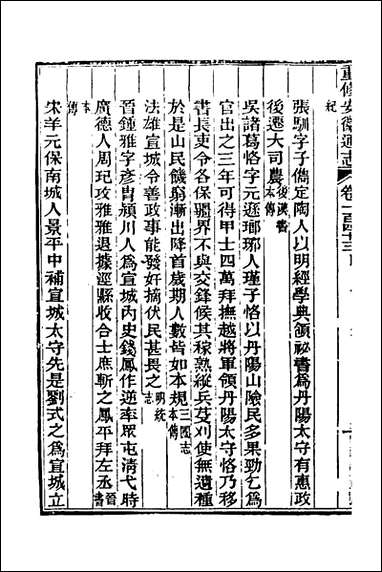 重修安徽通志 卷一百四十三
紀
張馴字子儁定陶人以明經學典領祕書為丹陽太守有惠政
後遷大司農後漢書本傳
吳諸葛恪字元遜瑯琊人瑾子恪以丹陽山險民多果勁乞為
官出之三年可得甲士四萬拜撫越將軍領丹陽太守恪乃移
書長吏令各保疆界不與交鋒候其稼熟縱兵芟刈使無遺種
於是山民饑窮漸出降首歲期人數皆如本規三國志本傳
法雄宣城令善政事能發奸摘伏民甚畏之明統志
晉鍾雅字彥胄潁川人為宣城內史錢鳳作逆率眾屯淸弋時
廣德人周玘攻雅雅退據涇縣收合士庶斬之鳳平拜左丞晉書
本傳
宋羊元保南城人景平中補宣城太守先是劉式之為宣城立